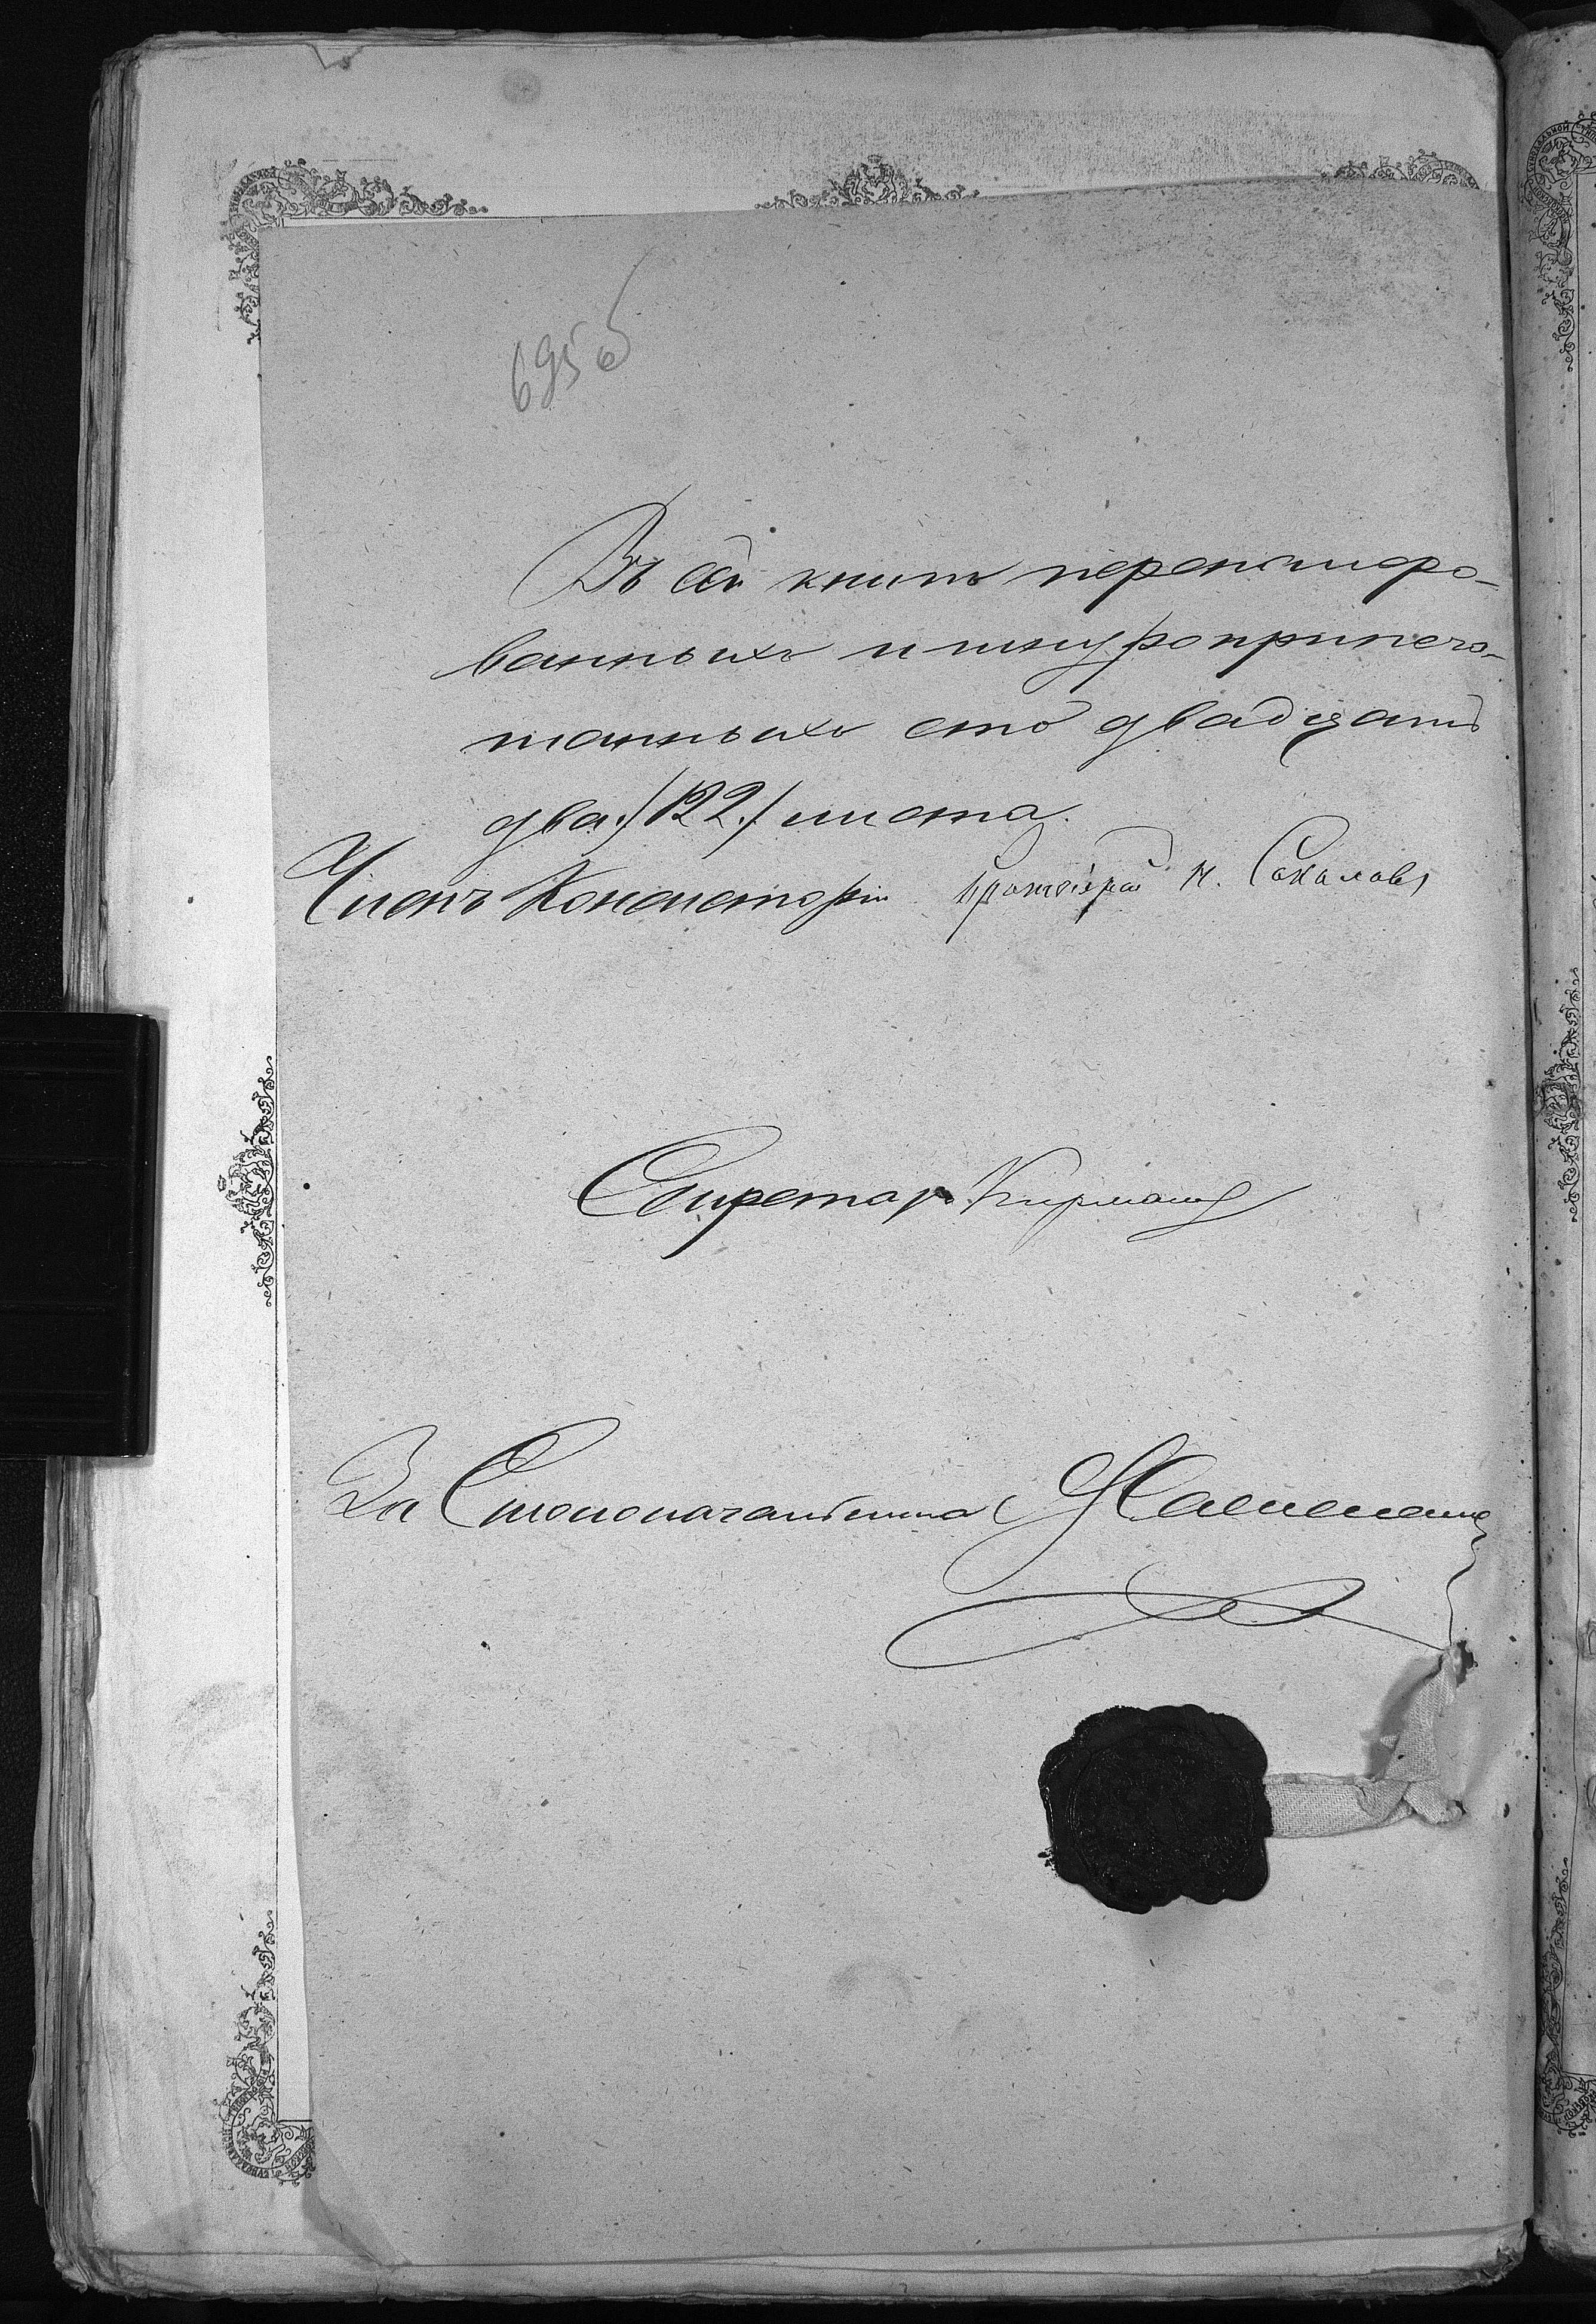 695 об
Въ сей книгѣ перенумеро-
ванныхъ и шнуроприпеча-
танныхъ сто двадцать
два ./122./ листа.
Членъ Консисторіи Протоіерей Н. Соколовъ
Секретарь
За Столоначальника